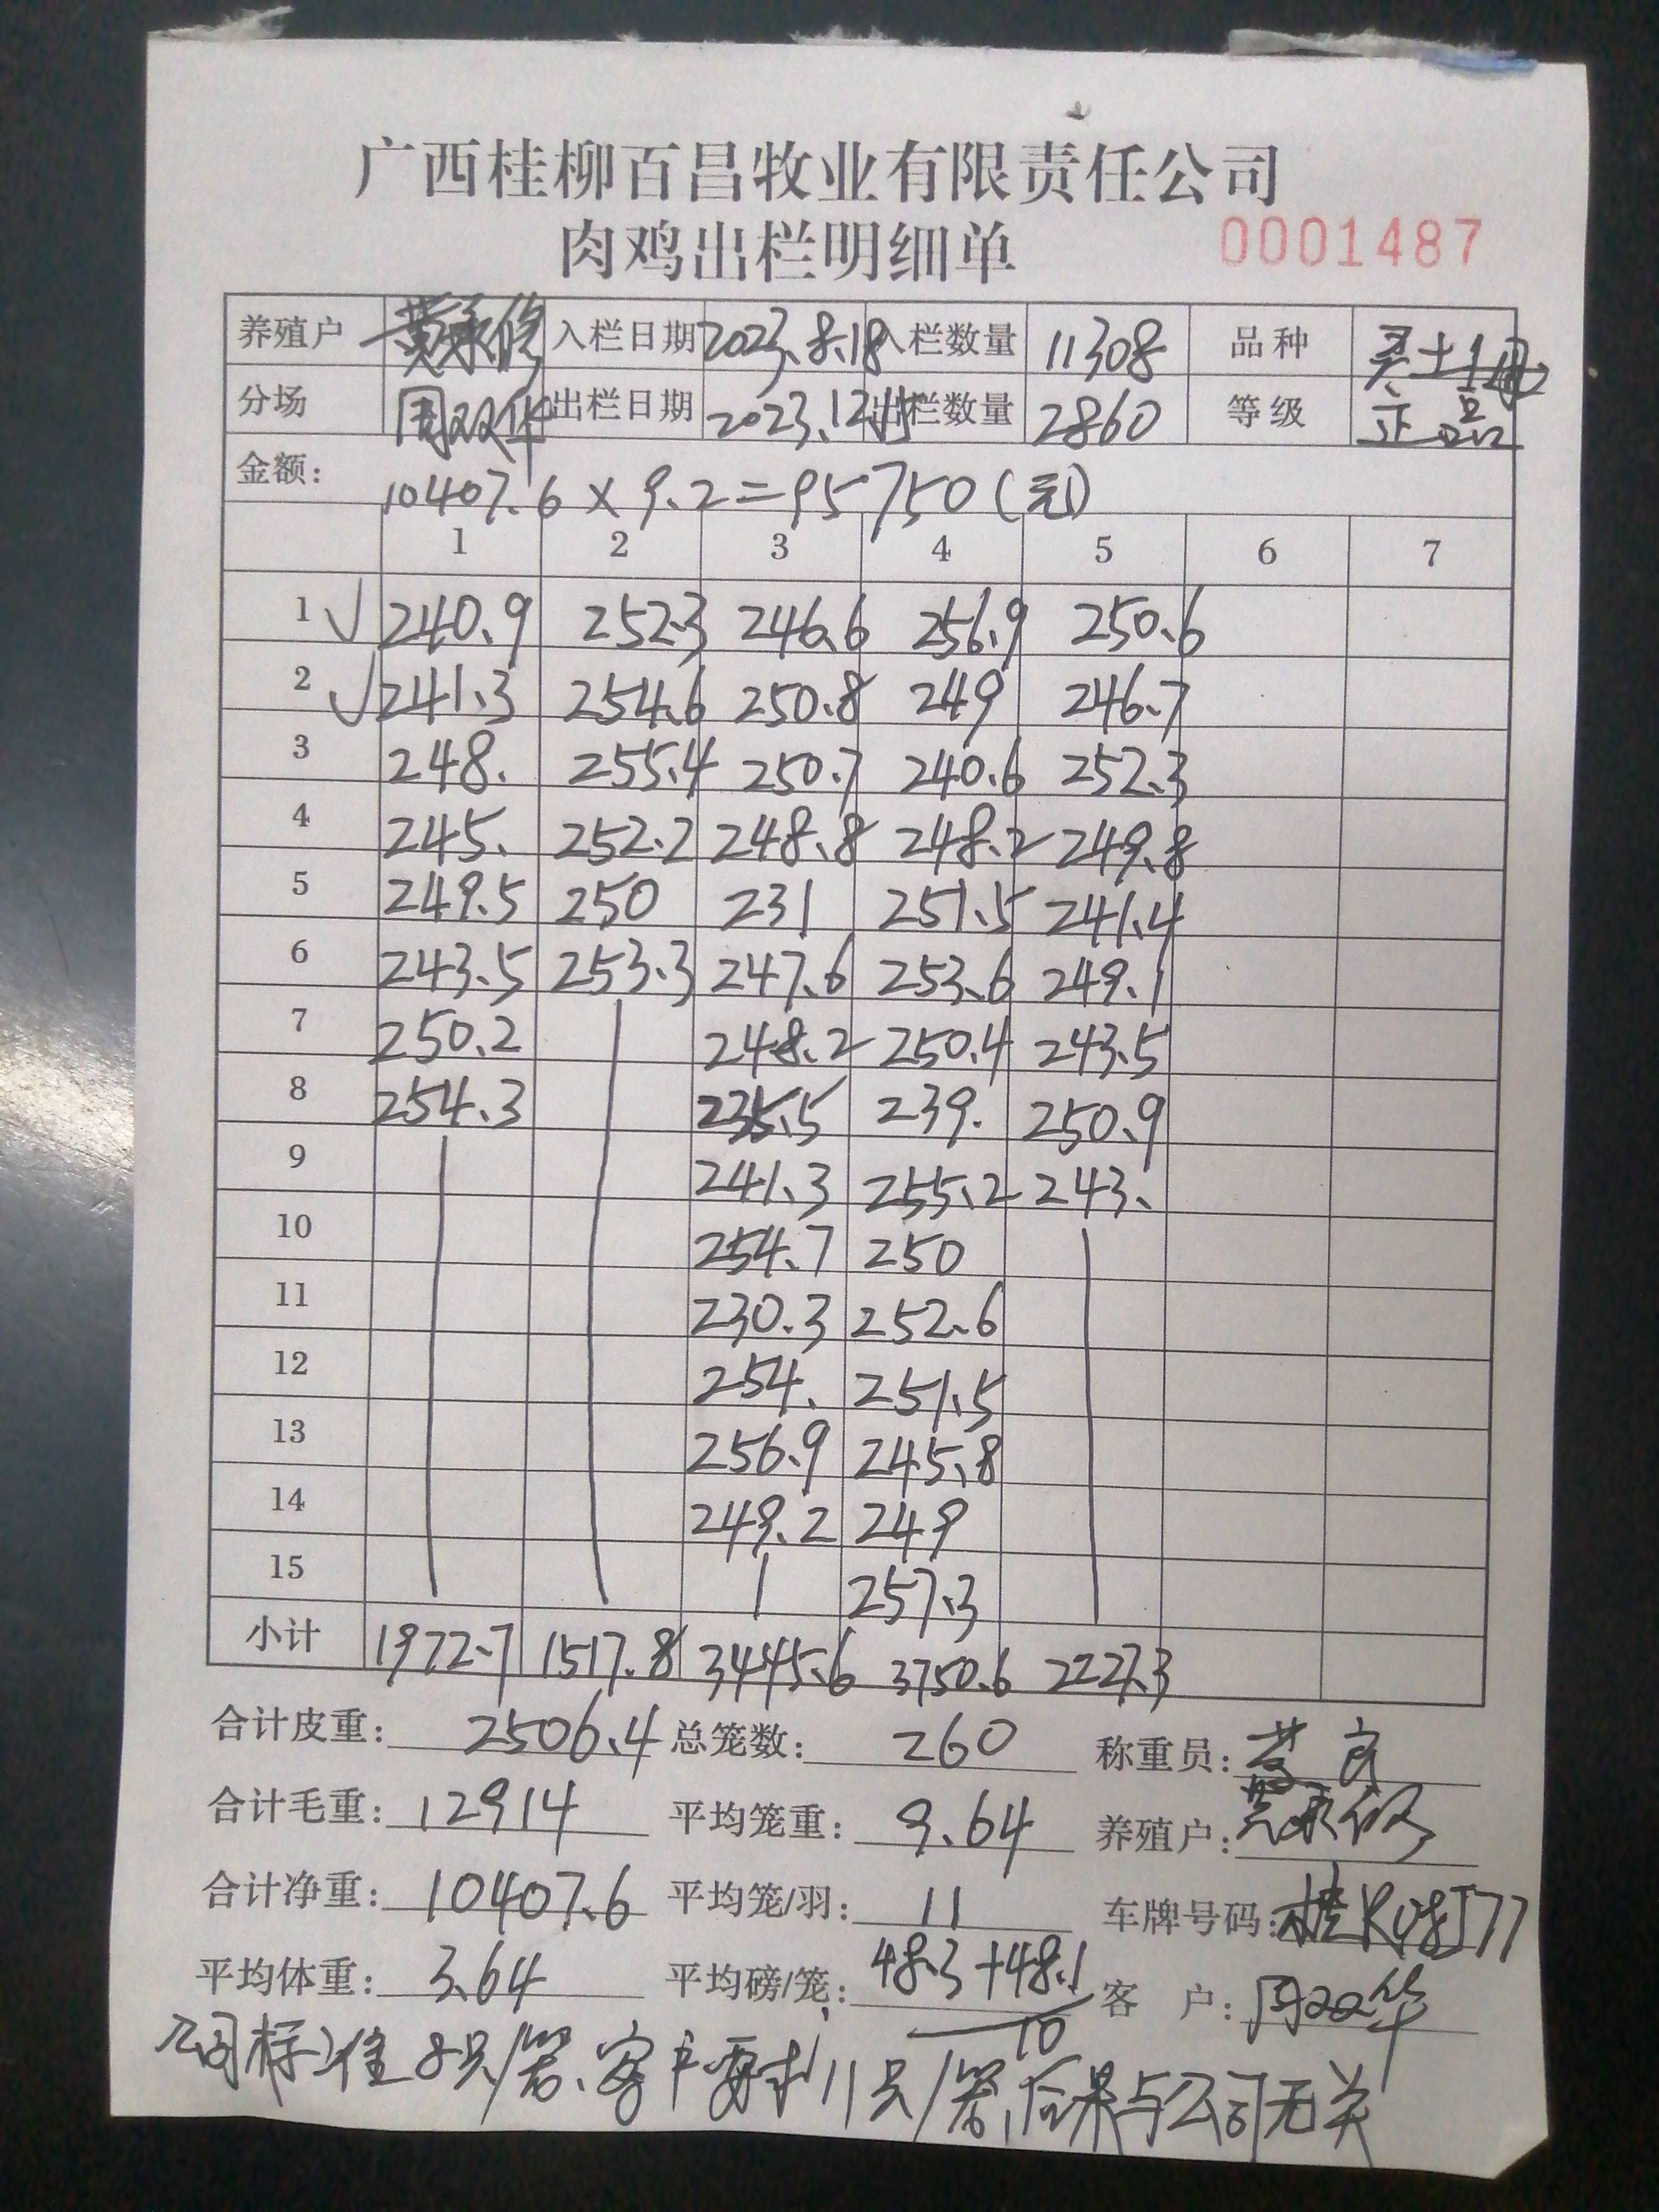 广西桂柳百昌牧业有限责任公司
肉鸡出栏明细单 0001487
养殖户 黄永修 入栏日期 2023.8.18 入栏数量 11308 品种 灵土1母
分场 周双华 出栏日期 2023.12 出栏数量 2860 等级 正品
金额: 10407.6 × 9.2 = 95750(元)
1 2 3 4 5 6 7
1 √ 240.9 252.3 246.6 256.9 250.6
2 √ 241.3 254.6 250.8 249 246.7
3 248. 255.4 250.7 240.6 252.3
4 245. 252.2 248.8 248.2 249.8
5 249.5 250 231 251.5 241.4
6 243.5 253.3 247.6 253.6 249.1
7 250.2 248.2 250.4 243.5
8 254.3 235.5 239. 250.9
9 241.3 255.2 243.
10 254.7 250
11 230.3 252.6
12 254. 251.5
13 256.9 245.8
14 249.2 249
15 257.3
小计 1972.7 1517.8 3445.6 3750.6 2227.3
合计皮重: 2506.4 总笼数: 260 称重员:
合计毛重: 12914 平均笼重: 9.64 养殖户: 黄永修
合计净重: 10407.6 平均笼/羽: 11 车牌号码: 桂K08J77
平均体重: 3.64 平均磅/笼: 48.3+48.1 客 户: 周双华
10
公司标准8只/笼、客户要求11只/笼,后果与公司无关